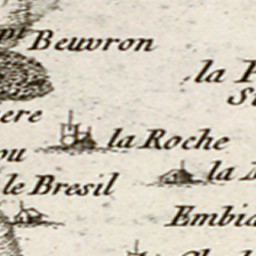 pt Beuvron
la
ere
la Roche
ou
la
le Bresil